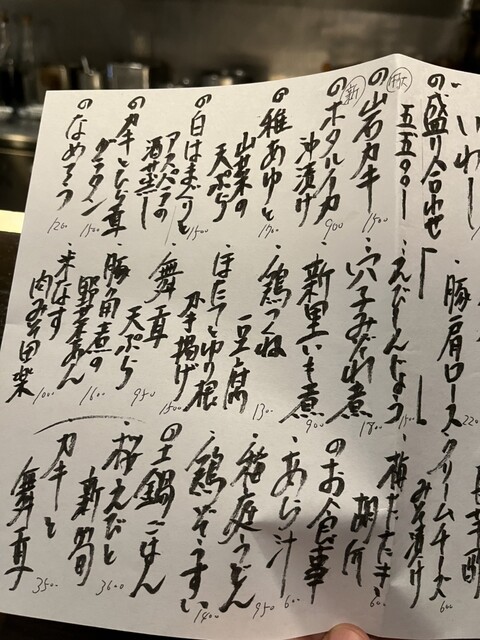 いわし
の盛り合わせ
五五〇〇ー
の山岩カキ
1500
新
のホタルイカ
沖漬け
900
の稚あゆと
山菜の
天ぷら
1900
の白はまぐりと
アスパラの
酒蒸し
1500
のカキと舞茸
グラタン
1500
のなめろう
1200
・豚肩ロース
220
・えびしんじょう
1500
・穴子みぞれ煮
1800
・新里いも煮
900
・鶏つくね
豆腐
1300
・ほたてとゆり根
かき揚げ
1500
・舞茸
天ぷら
950
・豚角煮の
野菜あん
1600
・米なす
肉みそ田楽
1000
・クリームチーズ
みそ漬け
600
・梅たたき
胡瓜
600
のお食事
・あら汁
600
・稲庭うどん
950
・鶏ぞうすい
1400
の土鍋ごはん
・桜えびと
新筍
3600
・カキと
舞茸
3500